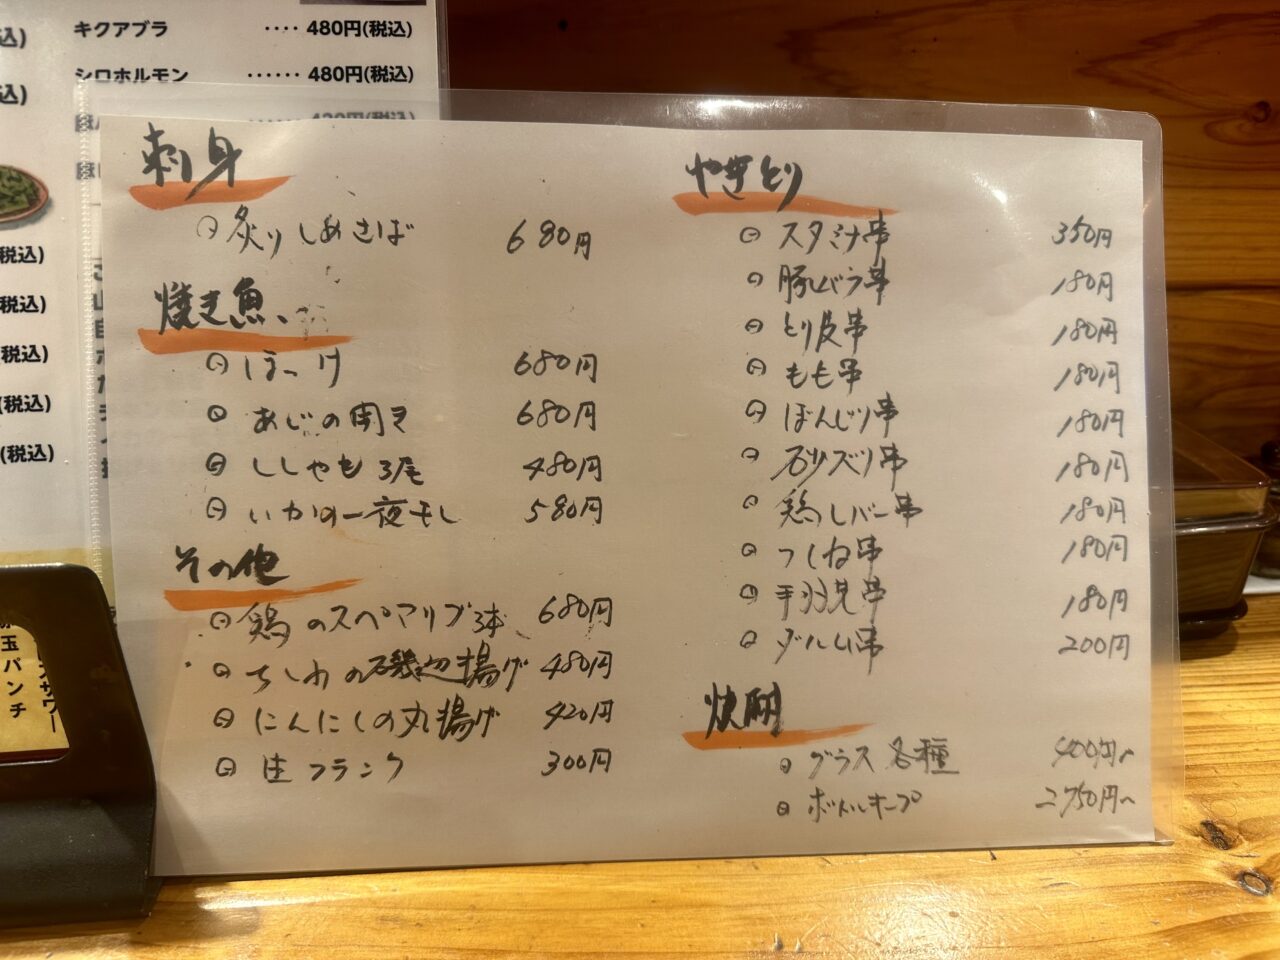 キクアブラ ‥‥ 480円(税込)
シロホルモン ‥‥‥ 480円(税込)
刺身
炙りしめさば 680円
焼き魚
ほっけ 680円
あじの開き 680円
ししゃも3尾 480円
いかの一夜干し 580円
その他
鶏のスペアリブ3本 680円
ちくわの磯辺揚げ 480円
にんにくの丸揚げ 420円
生フランク 300円
やきとり
スタミナ串 350円
豚バラ串 180円
とり皮串 180円
もも串 180円
ぼんじり串 180円
砂ズリ串 180円
鶏レバー串 180円
つくね串 180円
手羽先串 180円
ダルム串 200円
焼酎
グラス各種 400円〜
ボトルキープ 2750円〜
(税込)
(税込)
(税込)
(税込)
(税込)
玉パンチ
サワー